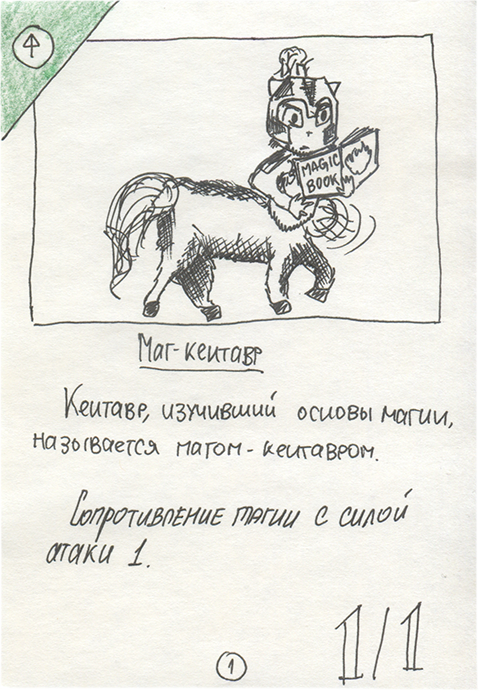 MAGIC
BOOK
Маг-кентавр
Кентавр, изучивший основы магии,
называется магом-кентавром.
Сопротивление магии с силой
атаки 1.
1/1
1